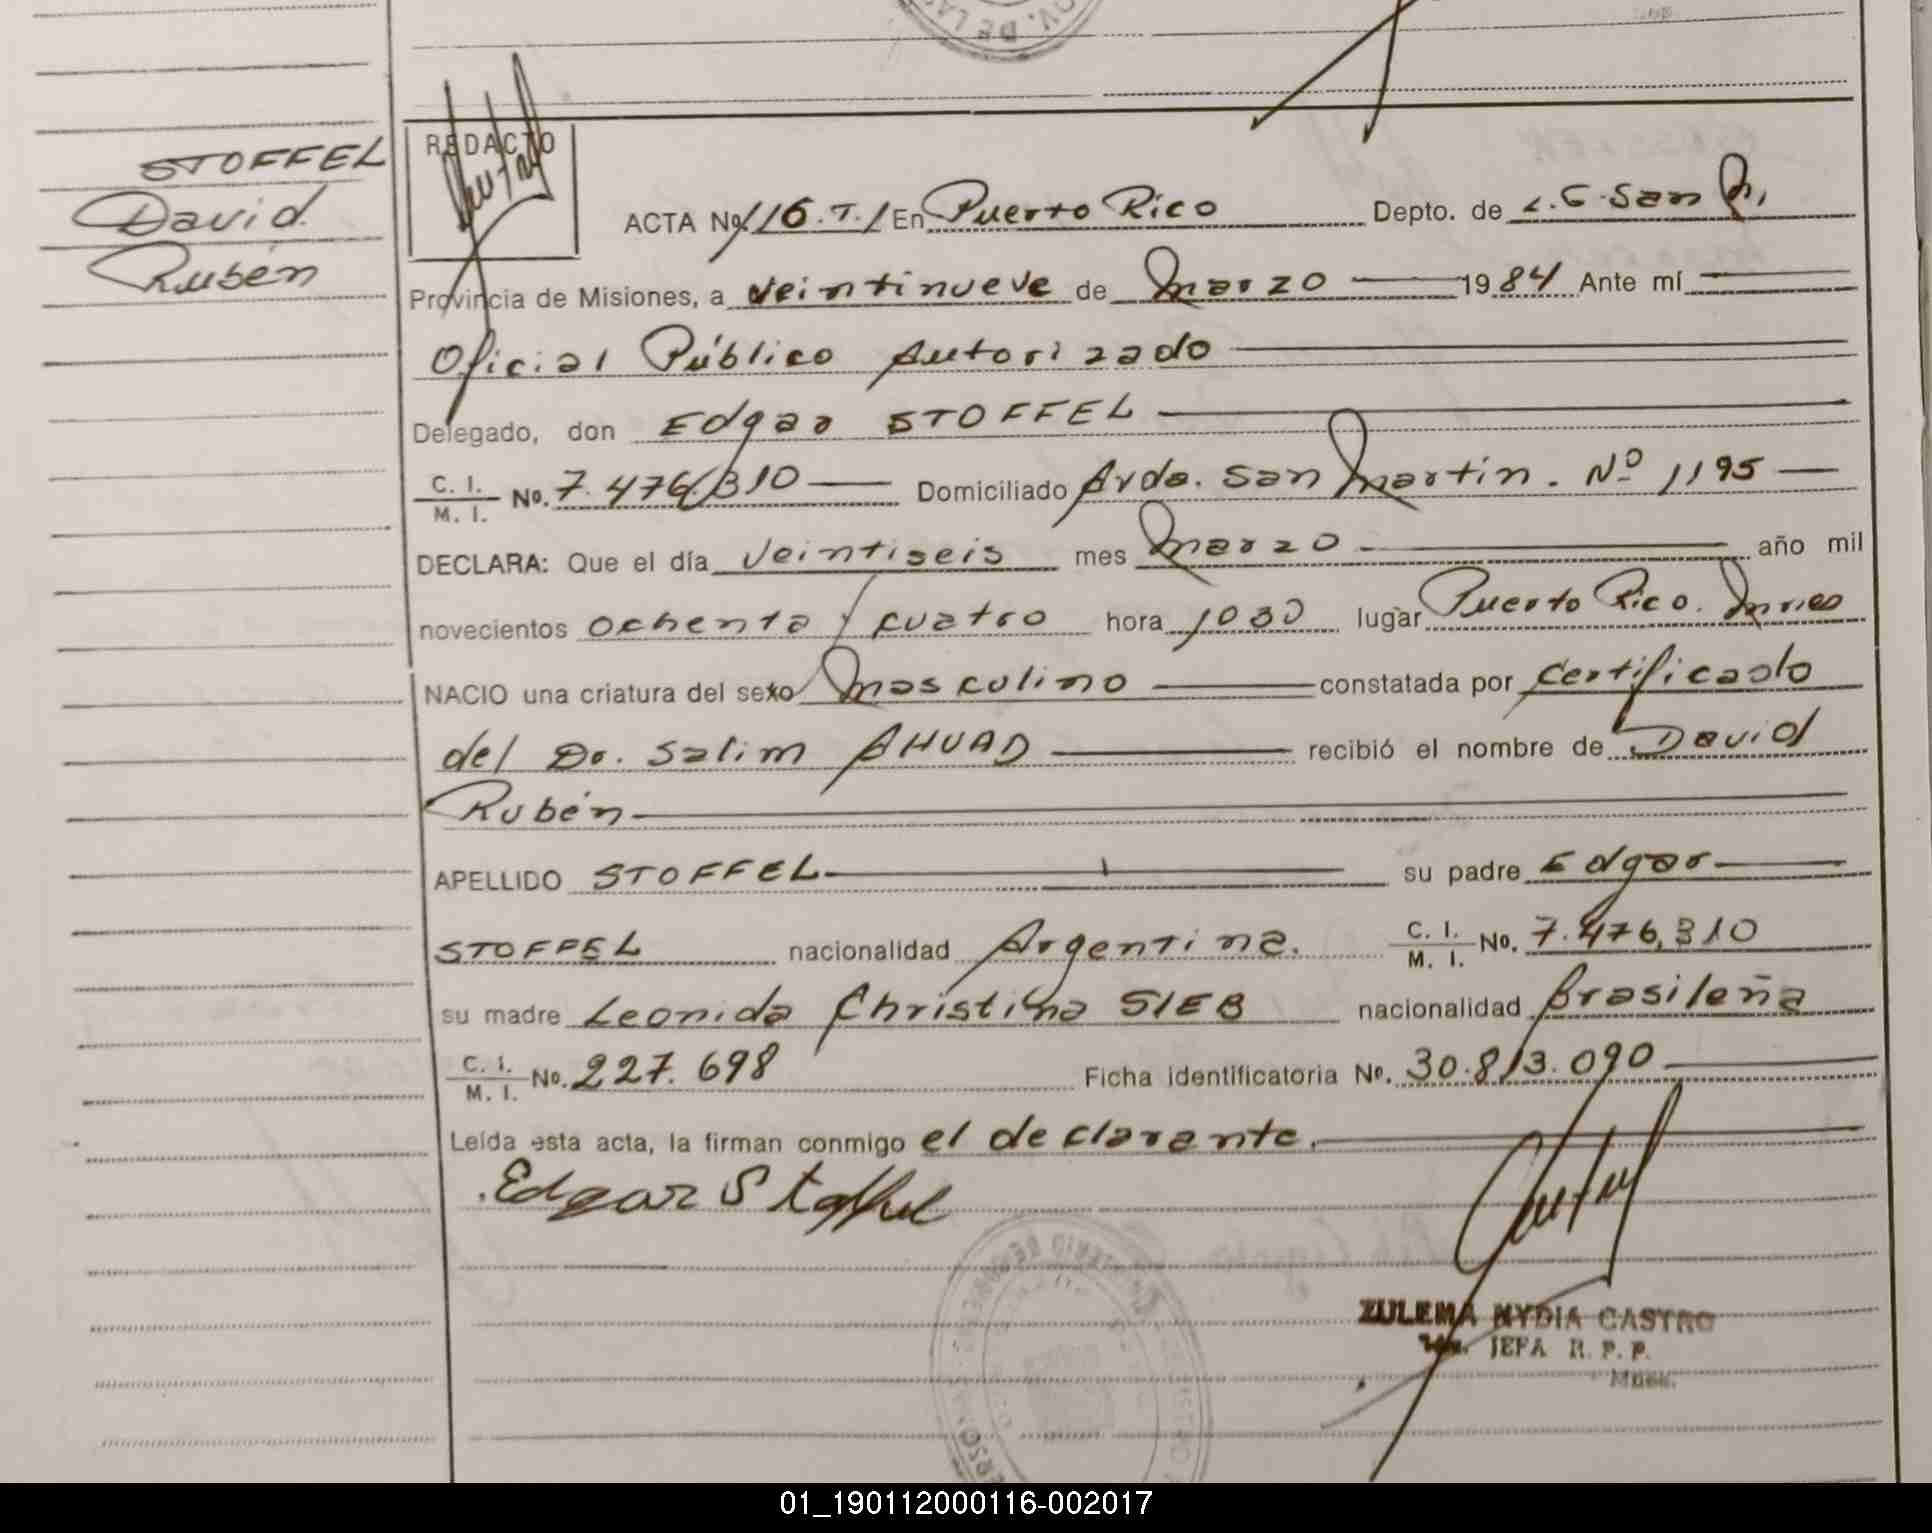 STOFFEL
David
Rubén
REDACTO
ACTA No 116.T.1 En Puerto Rico Depto. de L.G. San M.
Provincia de Misiones, a veintinueve de marzo 1984 Ante mí
Oficial Público Autorizado
Delegado, don Edgar STOFFEL
C. I.
M. I. No. 7.476.310 Domiciliado Avda. San Martin. Nº 1195
DECLARA: Que el día veintiseis mes marzo año mil
novecientos ochenta y cuatro hora 1030 lugar Puerto Rico.
NACIO una criatura del sexo masculino constatada por certificado
del Dr. Salim AHUAD recibió el nombre de David
Rubén
APELLIDO STOFFEL su padre Edgar
STOFFEL nacionalidad Argentina. C. I.
M. I. No. 7.476.310
su madre Leonida Christina SIEB nacionalidad Brasileña
C. I.
M. I. No. 227.698 Ficha identificatoria No. 30.813.090
Leída esta acta, la firman conmigo el declarante.
Edgar Stoffel
ZULEMA NYDIA CASTRO
JEFA R. P. P.
01_190112000116-002017